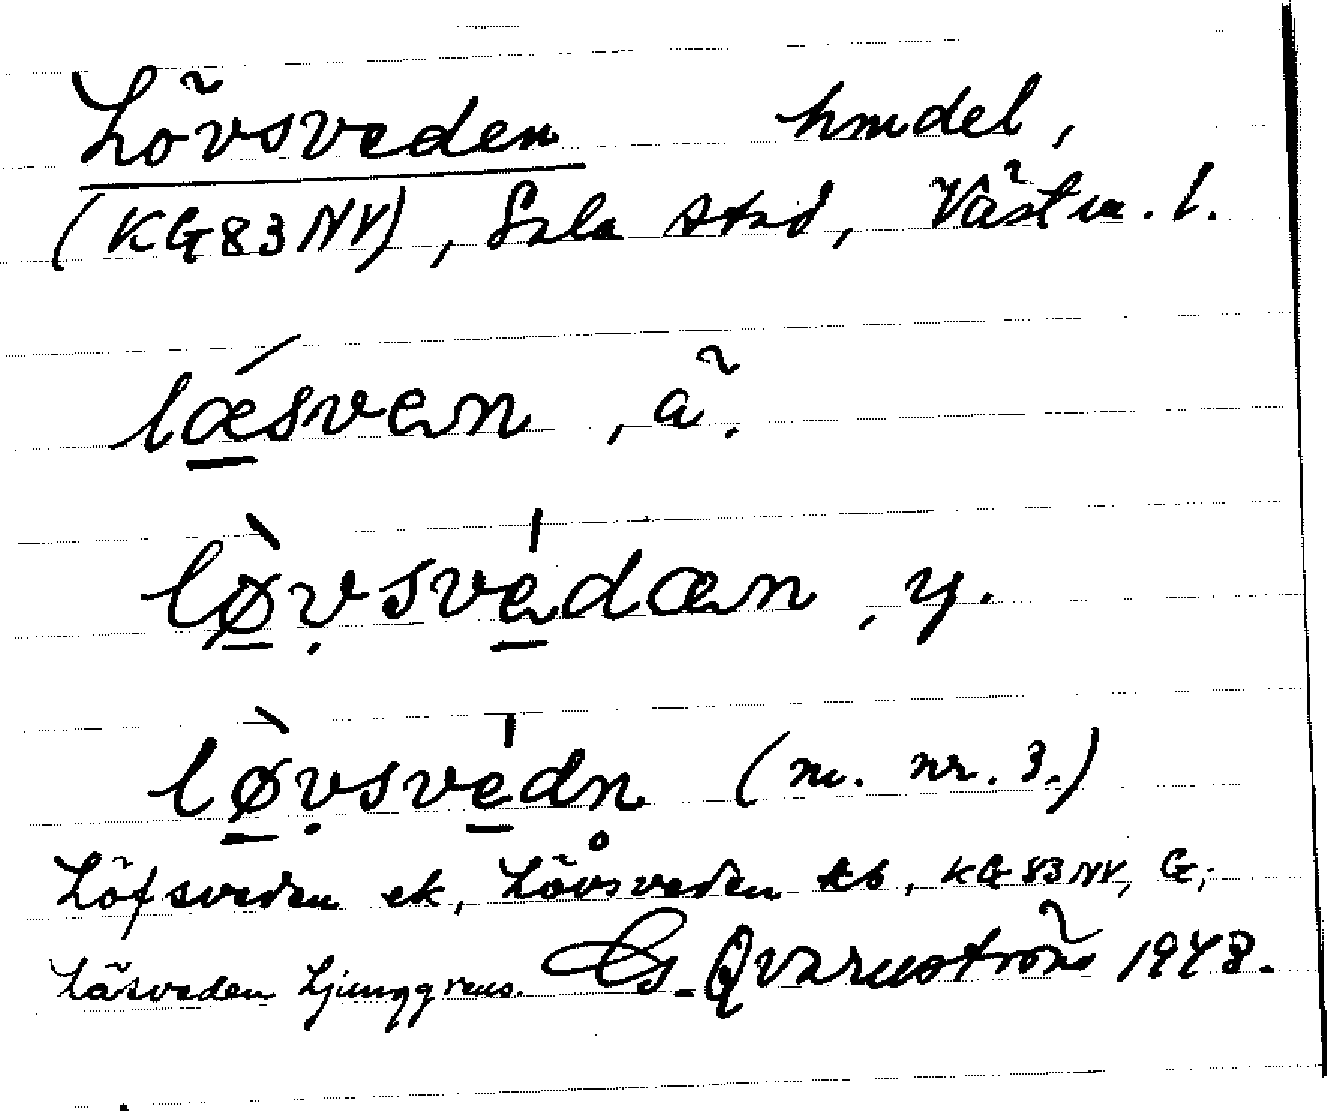 Lövsveden hmdel,
(KG83NV), Sala stad, Västm. l.
lǽ̲sven, ä.
lø̲̀ṿsve̲̍dæn, y.
lø̲̀ṿsve̲̍dn̥ (m. nr. 3.)
Löfsveden ek, Lövsveden tb, KG83NV, G;
Läsveden Ljunggrens. Gs. Qvarnström 1948.